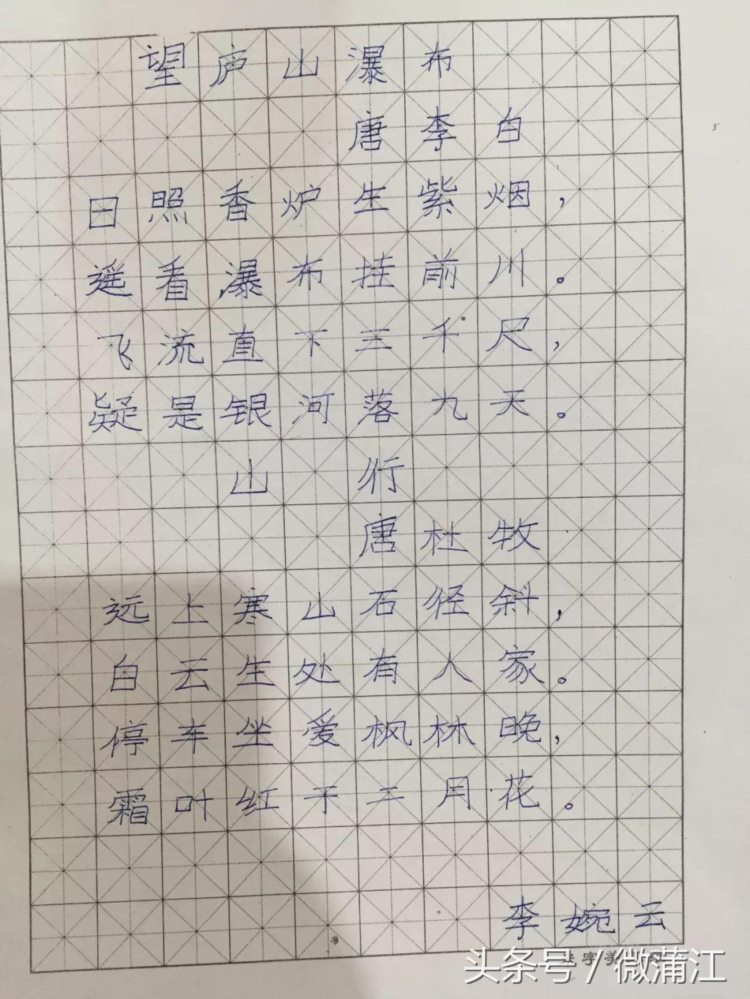 望庐山瀑布
唐李白
日照香炉生紫烟，
遥看瀑布挂前川。
飞流直下三千尺，
疑是银河落九天。
山行
唐杜牧
远上寒山石径斜，
白云生处有人家。
停车坐爱枫林晚，
霜叶红于二月花。
李婉云
头条号/微蒲江